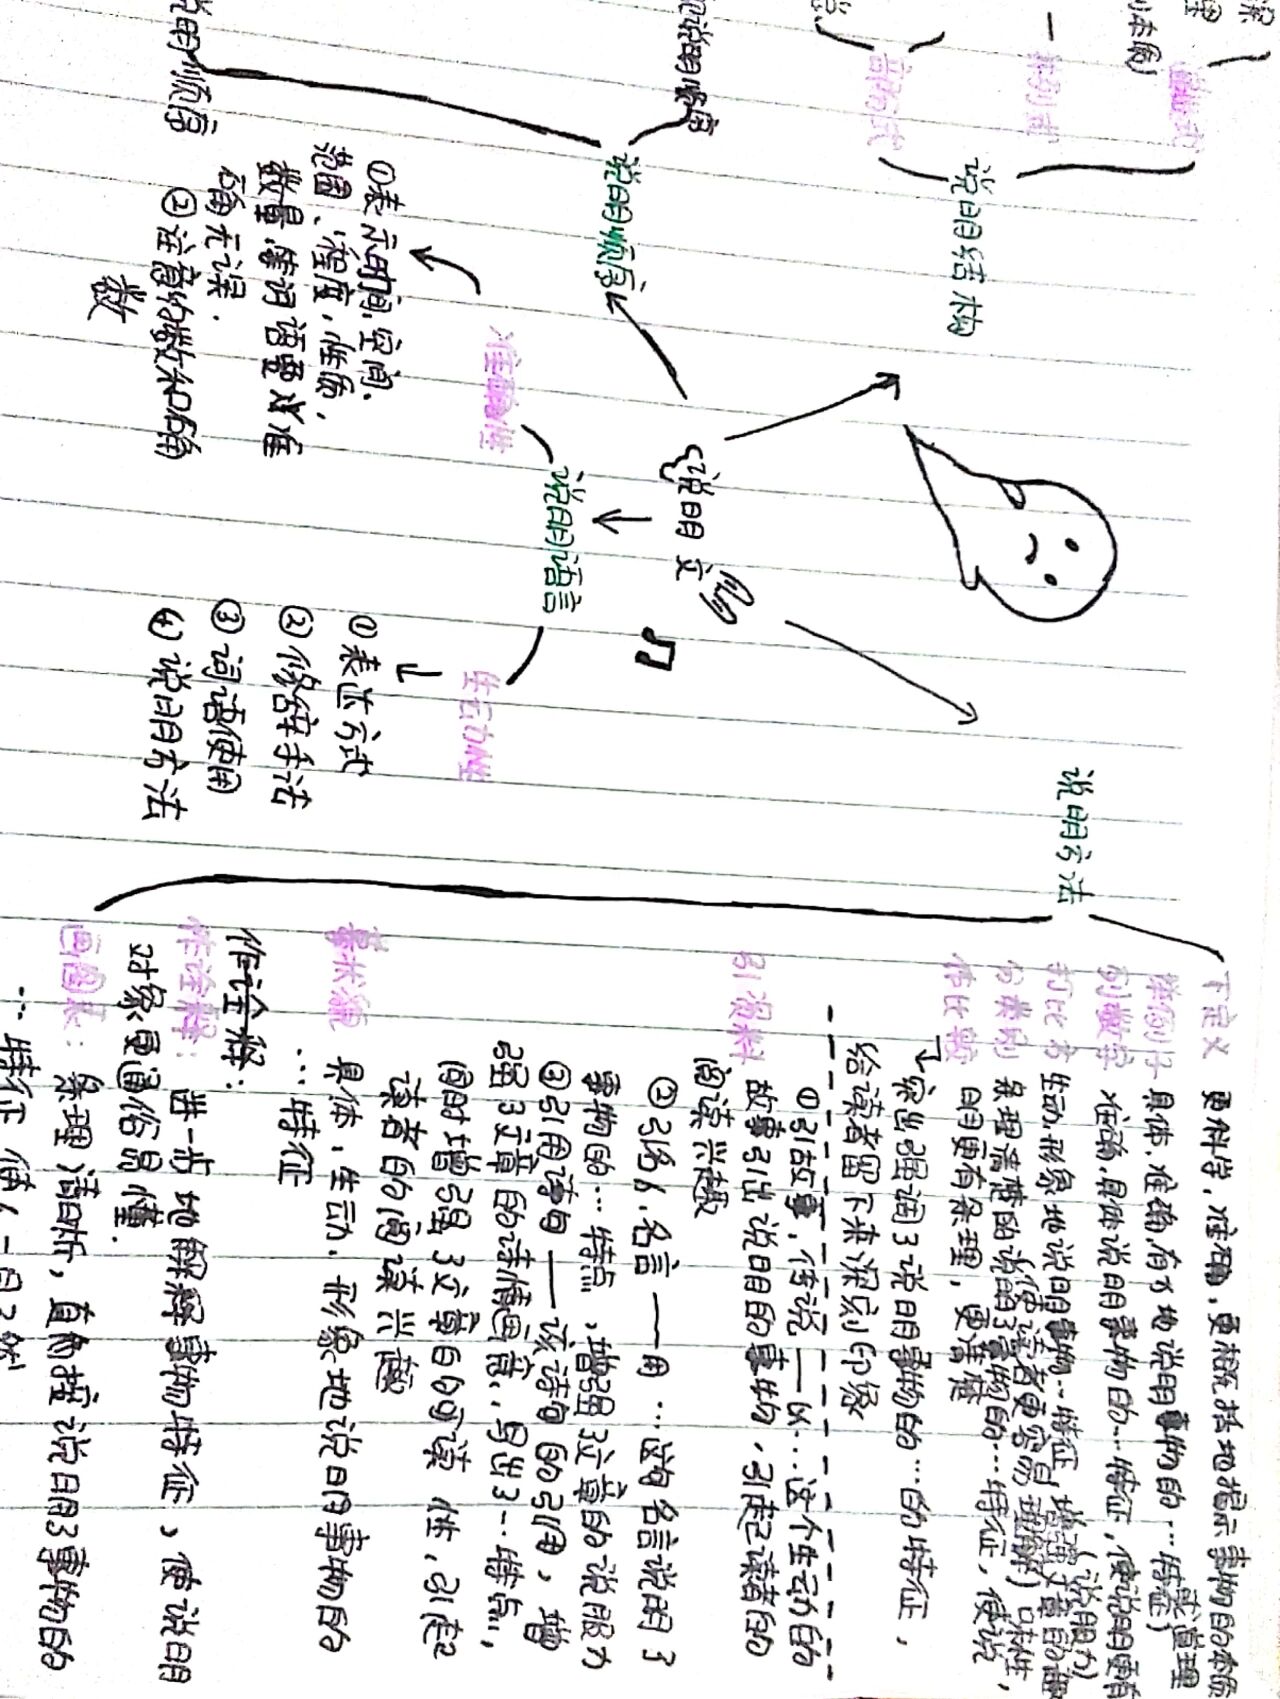 说明文
说明结构
总分式
并列式
递进式
说明顺序
说明顺序
说明顺序
说明语言
准确性
①表示时间、空间、
范围、程度、性质、
数量等词语要准
确无误.
②注意约数和确
数
生动性
①表达方式
②修辞手法
③词语使用
④说明方法
说明方法
下定义 更科学、准确、更概括地揭示事物的本质
或真理
举例子 具体、准确、有力地说明事物的…特征
列数字 准确、具体说明事物的…特征,使说明更有
(说服力)
打比方 生动形象地说明事物…特征 增强文章的趣
味性,
(使读者更容易理解)
分类别 条理清楚的说明了事物的…特征,使说
明更有条理,更清楚
作比较
突出强调了说明事物的…的特征,
给读者留下来深刻印象
引资料
①引故事,传说——以…这个生动的
故事引出说明的事物,引起读者的
阅读兴趣
②引俗,名言——用…这句名言说明了
事物的…特点,增强文章的说服力
③引用诗句——该诗句的引用,增
强了文章的诗情画意,写出了…特点,
同时增强了文章的可读性,引起
读者的阅读兴趣
摹状貌 具体、生动、形象地说明事物的
…特征
作诠释:
作诠释: 进一步地解释事物特征、使说明
对象更通俗易懂.
画图表: 条理清晰,直观说明了事物的
…特征,使人一目了然